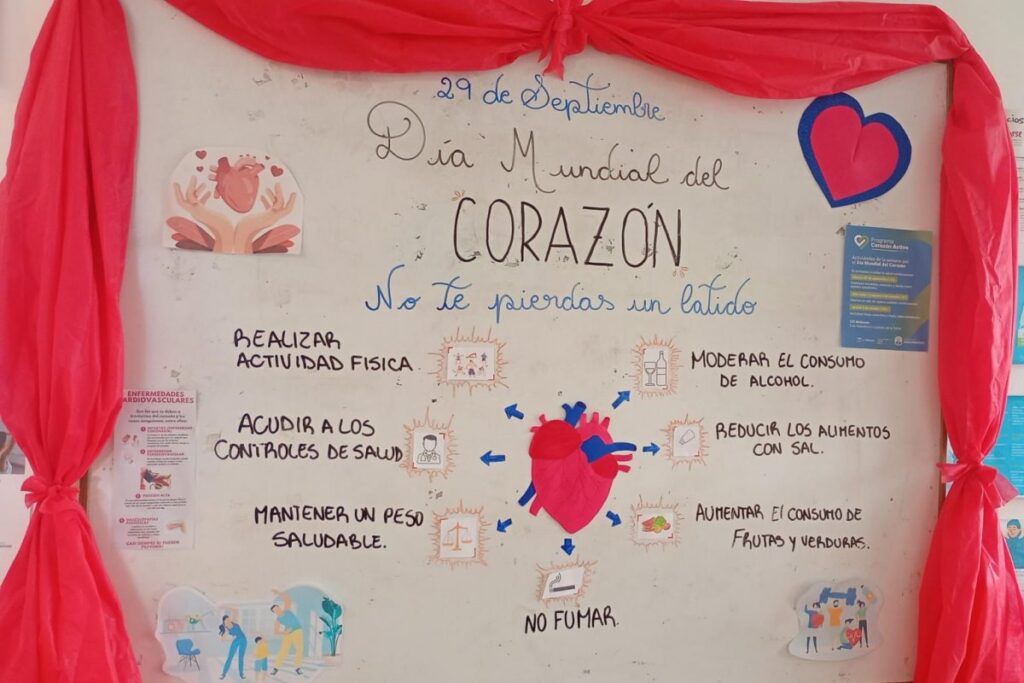 29 de Septiembre
Día Mundial del
CORAZÓN
No te pierdas un latido
REALIZAR
ACTIVIDAD FISICA
ACUDIR A LOS
CONTROLES DE SALUD
MANTENER UN PESO
SALUDABLE.
MODERAR EL CONSUMO
DE ALCOHOL.
REDUCIR LOS ALIMENTOS
CON SAL.
AUMENTAR El CONSUMO DE
FRUTAS Y VERDURAS.
NO FUMAR.
ENFERMEDADES
CARDIOVASCULARES
Programa
Corazón Activo
Actividades de la semana por
el Día Mundial del Corazón